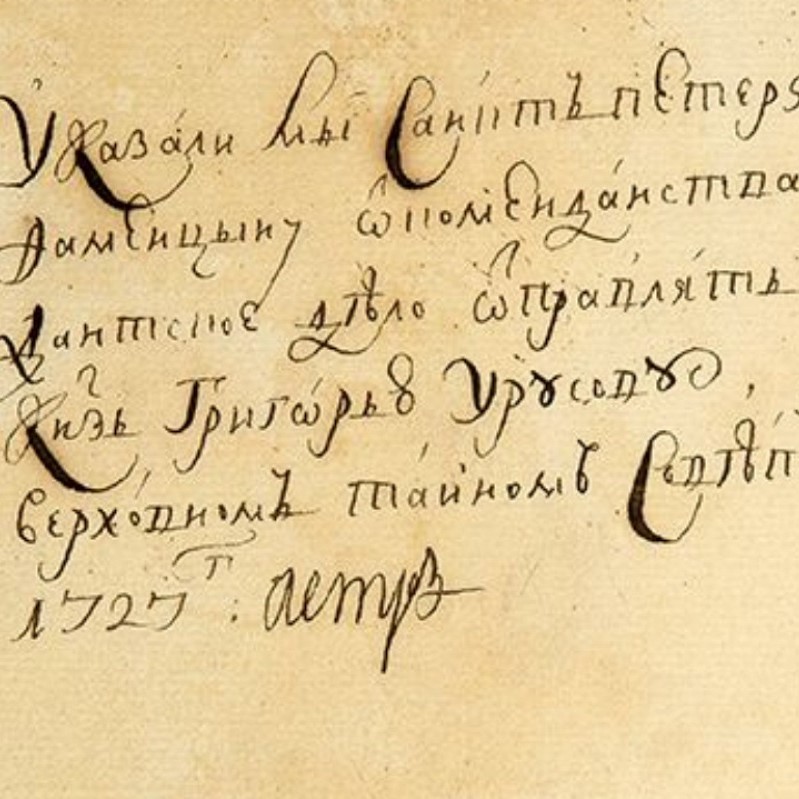 Указали мы Санктъ петерб
Фаминцыну ѿ комендантства
дантское дѣло ѿправлять
Кнзь Григорью Урусову,
верховномъ тайномъ Совѣт
1727г. Петръ